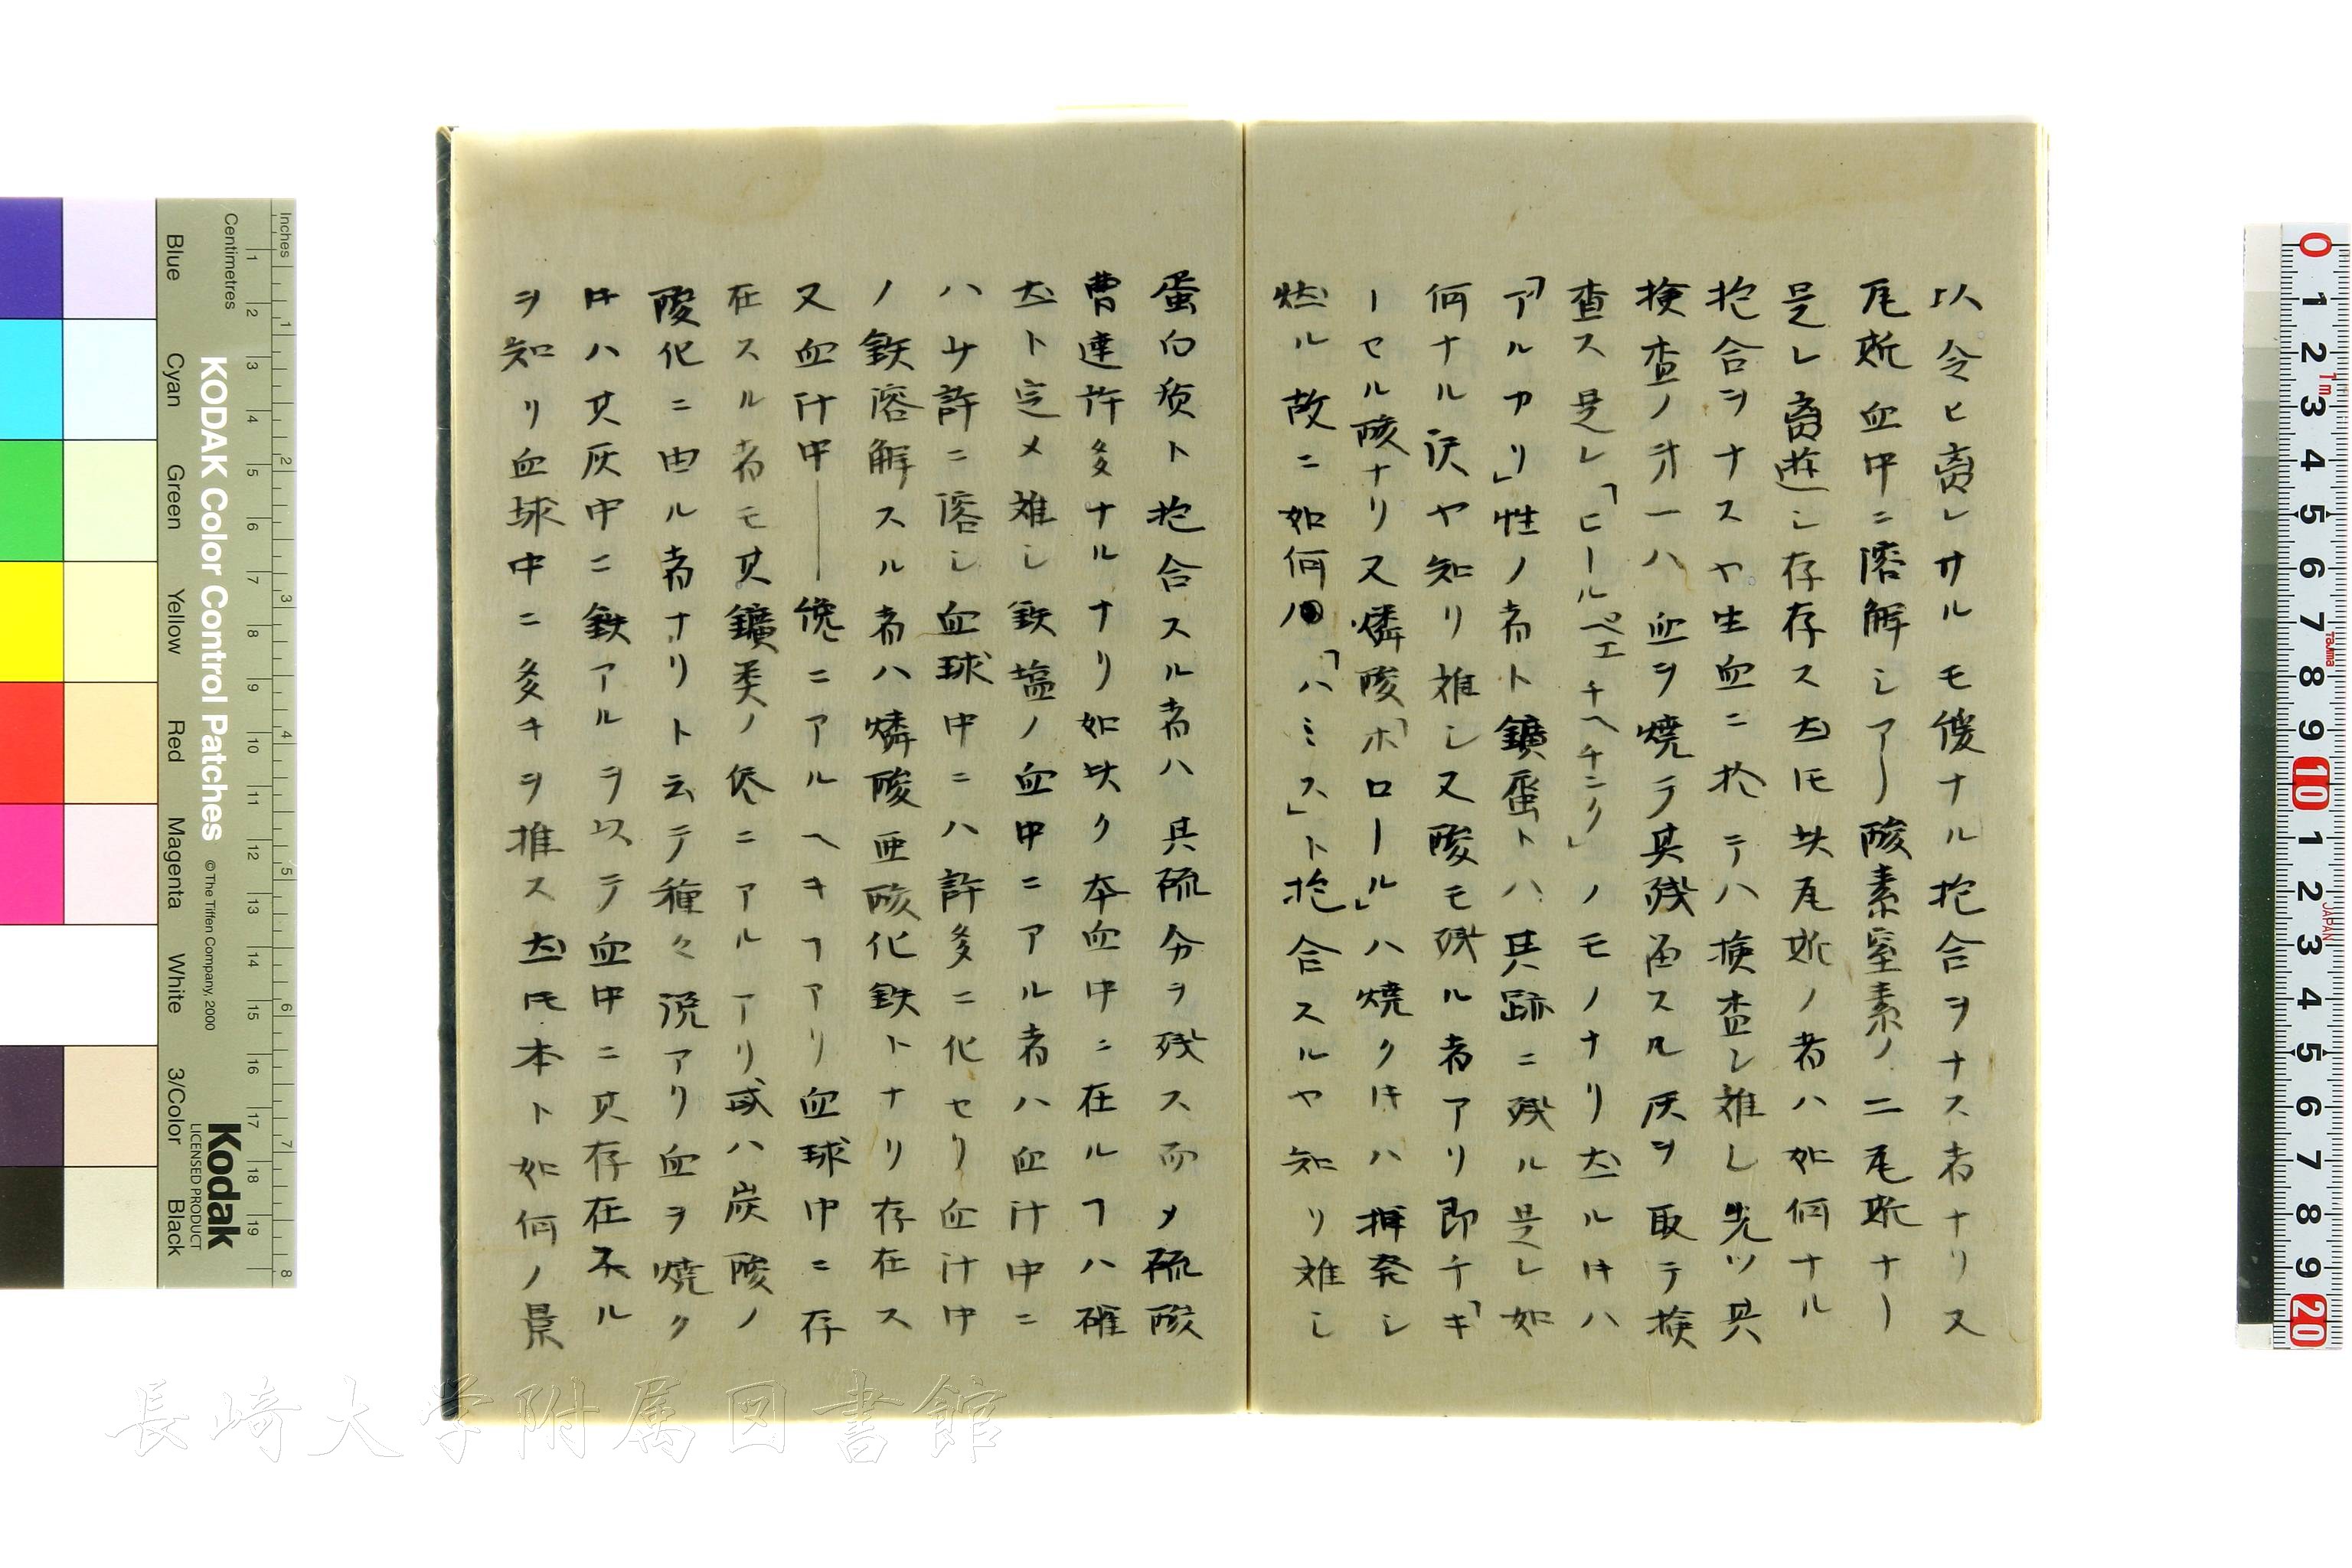 以令ヒ離レサルモ優ナル抱合ヲナス者ナリス
瓦斯血中ニ溶解シアー酸素窒素ノ二瓦斯ナー
是レ遊シ存存ス𪜈此瓦斯ノ者ハ如何ナル
抱合ヲナスヤ生血ニ於テハ検査シ難し先ツ其
検査ノ才一ハ血ヲ焼テ其残留スル灰ヲ取テ検
査ス是レ「ヒールペエチヘチニク」ノモノナリ然ル时ハ
「アルカリ」性ノ者ト鑛蛋トハ其跡ニ残ル是レ如
何ナル状ヤ知リ難シ又酸モ残ル者アリ即チ「キ
ーセル酸ナリ又燐酸「ホロール」ハ焼ク时ハ揮発シ
然ル故ニ如何ノ「ハミス」ト抱合スルヤ知リ難し
蛋白质ト抱合スル者ハ其硫分ヲ残ス而メ硫酸
曹達許多ナルナリ如此ク本血中ニ在ルヿハ確
然ト定メ難し鉄塩ノ血中ニアル者ハ血汁中ニ
ハ少許ニ溶し血球中ニハ許多ニ化セリ血汁中
ノ鉄溶解スル者ハ燐酸亜酸化鉄トナリ存在ス
又血汁中――儘ニアルヘキヿアリ血球中ニ存
在スル者モ其鑛类ノ侭ニアルアリ或ハ炭酸ノ
酸化ニ由ル者ナリト云テ種々説アリ血ヲ焼ク
时ハ其灰中ニ鉄アルヲ以テ血中ニ其存在ル
ヲ知リ血球中ニ多キヲ推ス然𪜈本ト如何ノ景
長崎大学附属図書館
Inches
Centimetres
KODAK Color Control Patches
© The Tiffen Company, 2000
Kodak
LICENSED PRODUCT
Blue
Cyan
Green
Yellow
Red
Magenta
White
3/Color
Black
1 2 3 4 5 6 7 8 9 10 11 12 13 14 15 16 17 18 19
1 2 3 4 5 6 7 8
0 1 2 3 4 5 6 7 8 9 10 1 2 3 4 5 6 7 8 9 20
1m
Tajima
JAPAN